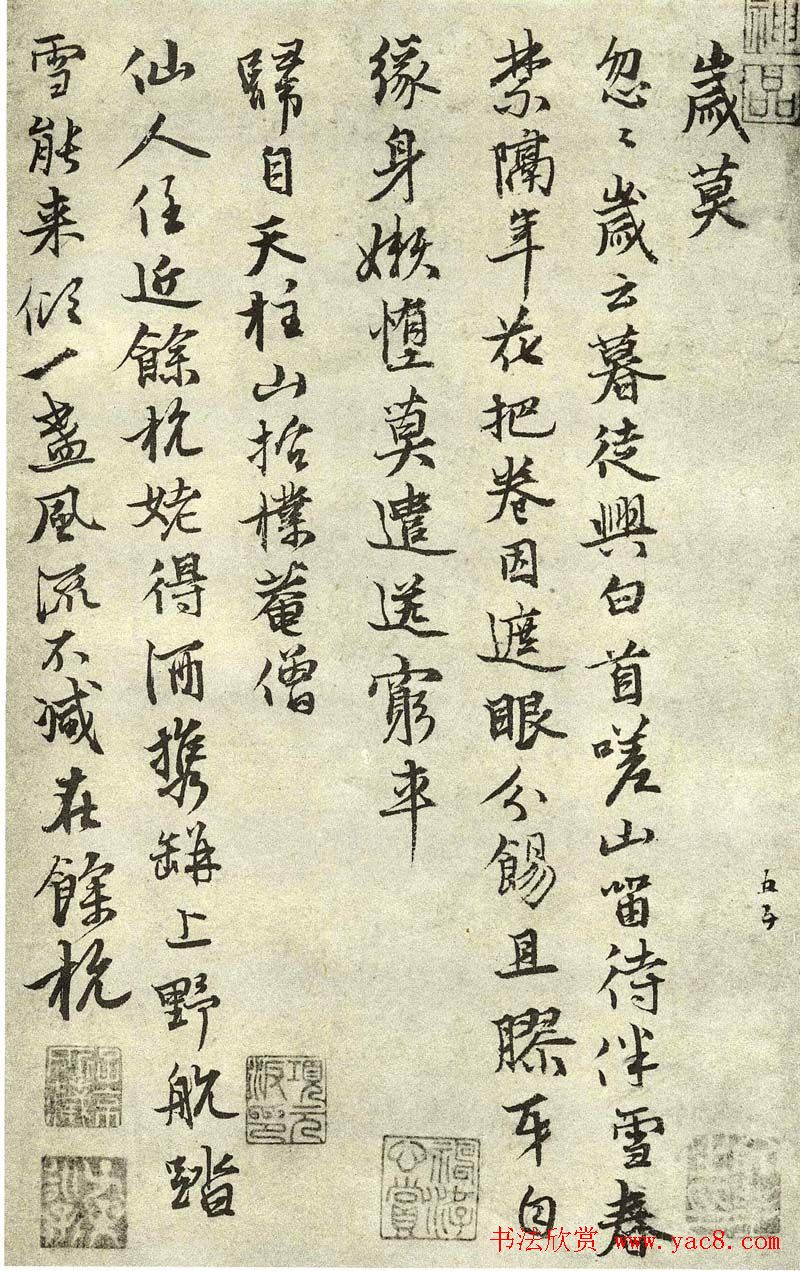 歲莫
忽〻歲云暮徒興白首嗟山留待伴雪春
禁隔年花把卷因遮眼分餳且膠牙自
緣身嬾惰莫遣送窮車
歸自天柱山括樸菴僧
仙人住近餘杭姥得酒携缾上野航踏
雪能来倾一盞風流不減在餘杭
五子
神品
項元汴印
書法欣赏 www.yac8.com